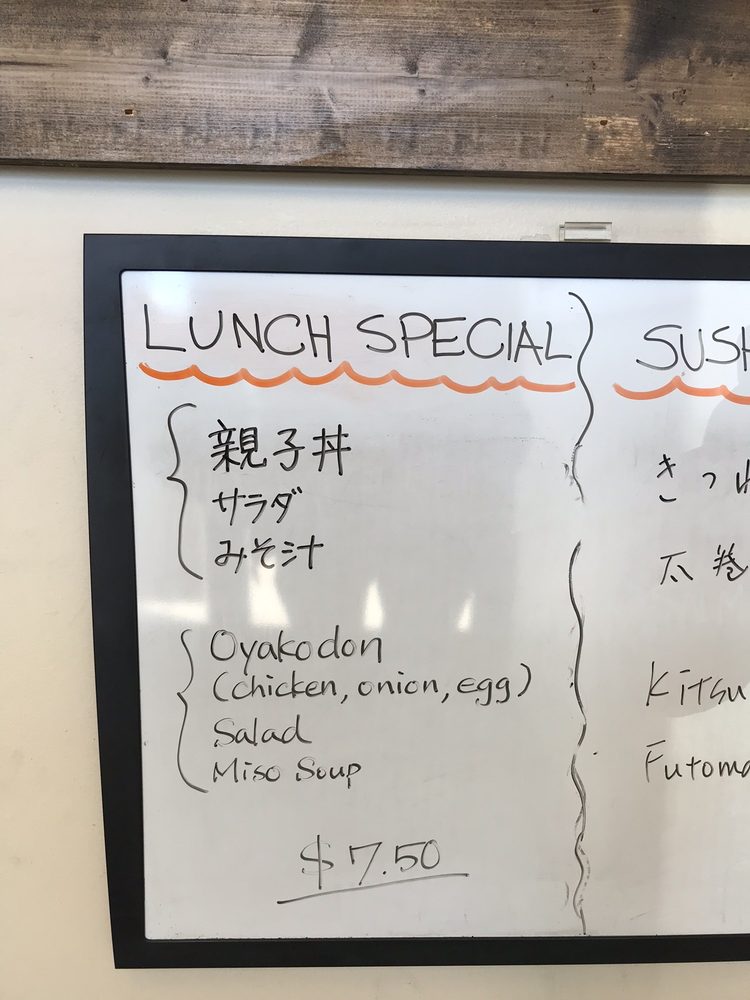 LUNCH SPECIAL
親子丼
サラダ
みそ汁
Oyakodon
(chicken, onion, egg)
Salad
Miso Soup
$7.50
SUSH
きつ
太巻
Kitsu
Futoma